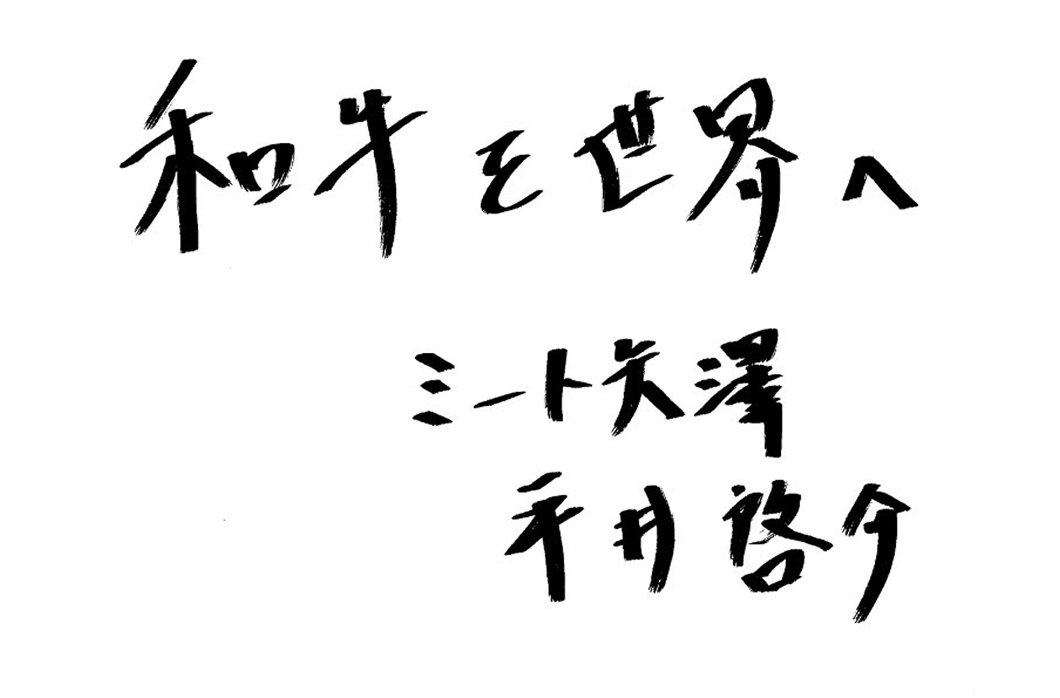 和牛を世界へ
ミート矢澤
平井啓介